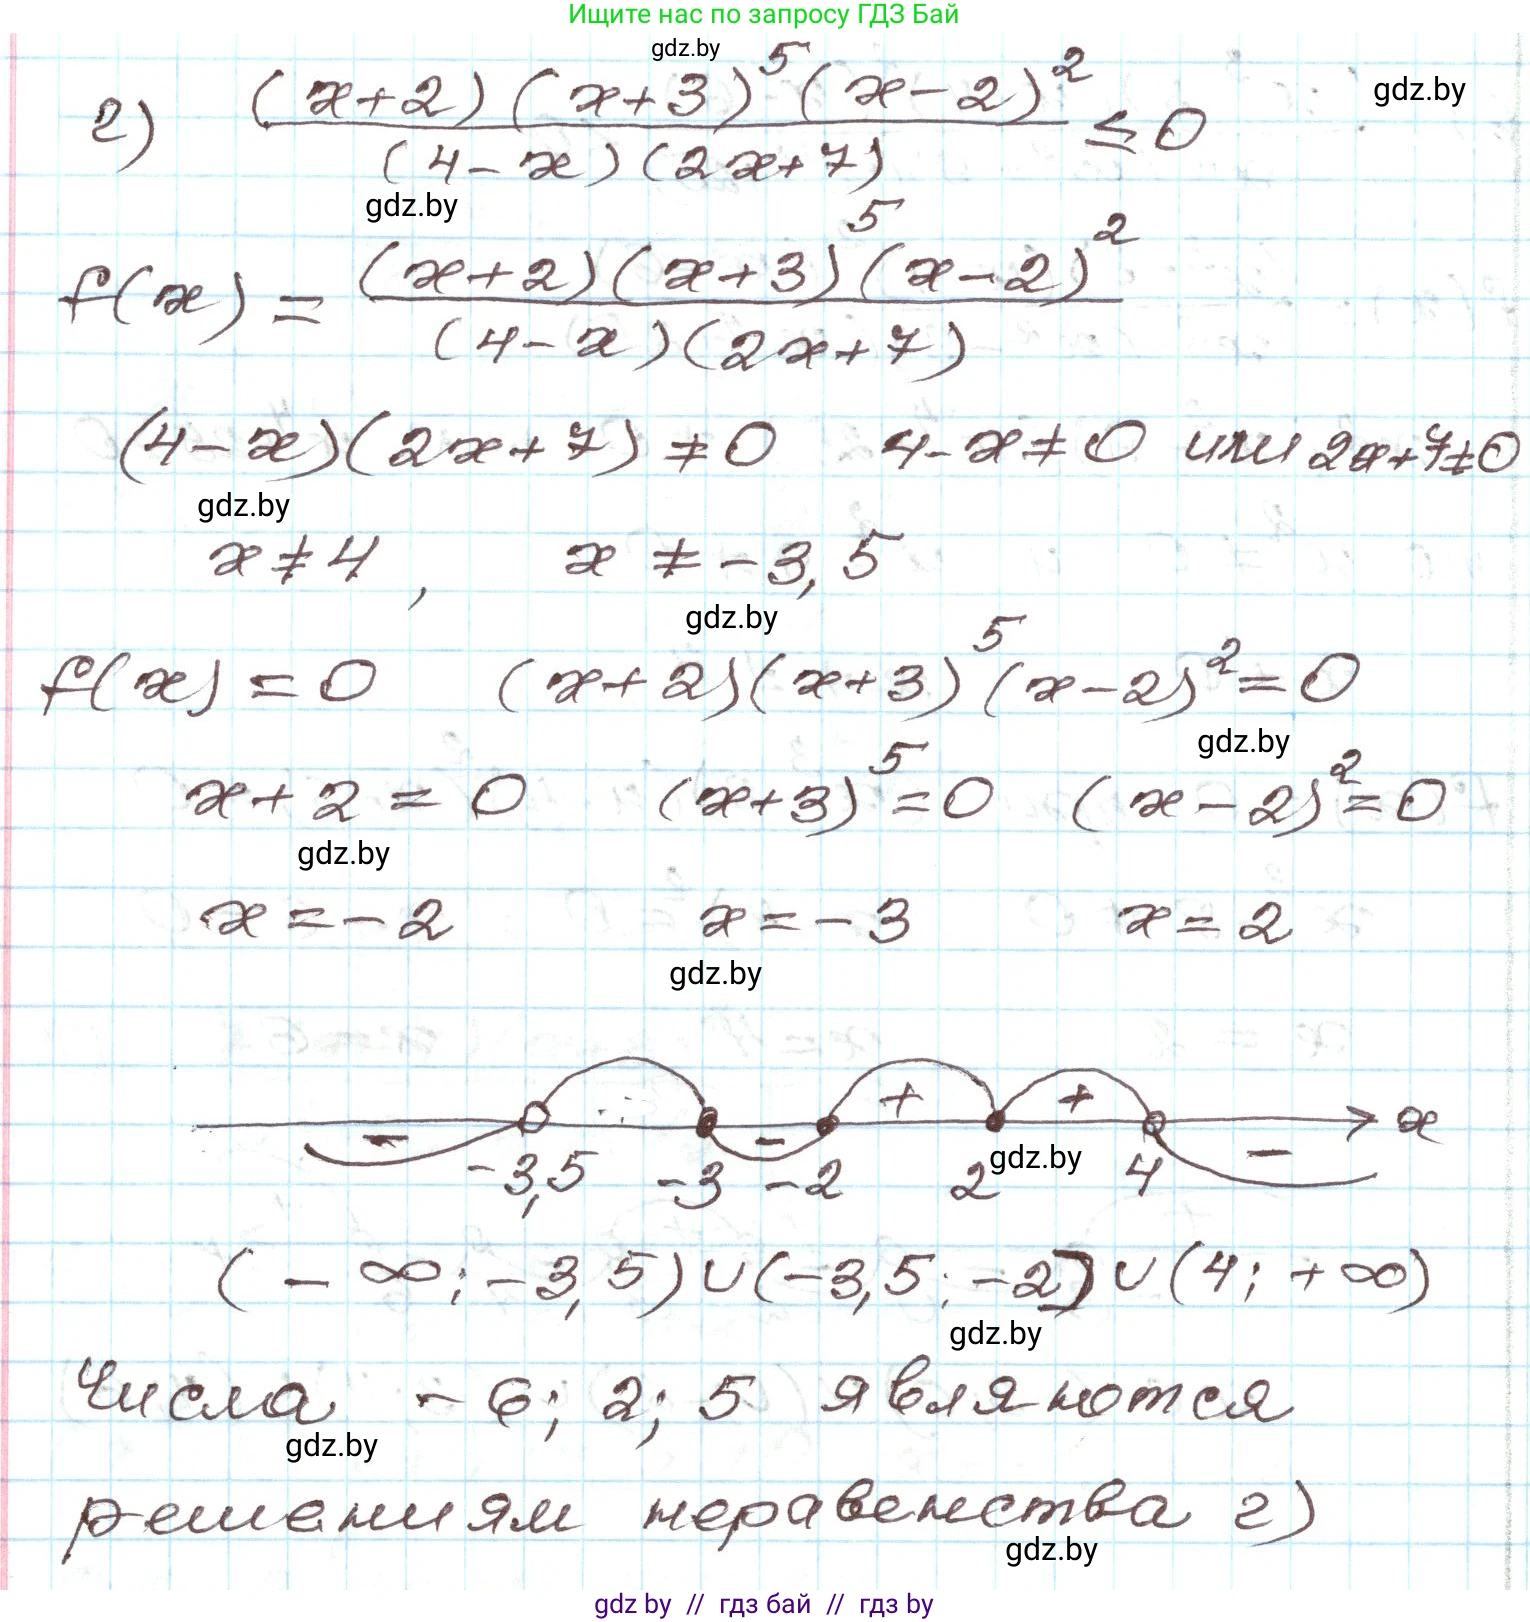 Ищите нас по запросу ГДЗ Бай
gdz.by
г) (x+2)(x+3)^5(x-2)^2 / (4-x)(2x+7) ≤ 0
gdz.by
gdz.by
f(x) = (x+2)(x+3)^5(x-2)^2 / (4-x)(2x+7)
(4-x)(2x+7) ≠ 0 4-x ≠ 0 или 2x+7 ≠ 0
gdz.by
x ≠ 4, x ≠ -3,5
gdz.by
f(x) = 0 (x+2)(x+3)^5(x-2)^2 = 0
gdz.by
x+2 = 0 (x+3)^5 = 0 (x-2)^2 = 0
gdz.by
x = -2 x = -3 x = 2
gdz.by
- - + + - x
-3,5 -3 -2 2 4
gdz.by
(-∞; -3,5) ∪ (-3,5; -2] ∪ (4; +∞)
gdz.by
Числа -6; 2; 5 являются
gdz.by
решениям неравенства г)
gdz.by
gdz by // гдз бай // гдз by